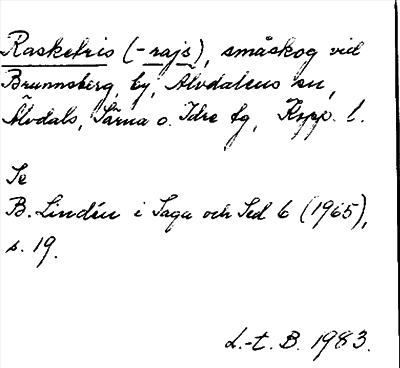 Raskelris (-rajs), småskog vid
Brunnsberg, by, Älvdalens sn,
Älvdals, Särna o. Idre tg, Kopp. l.
Se
B. Lindén i Saga och Sed 6 (1965),
s. 19.
L.-t. B. 1983.